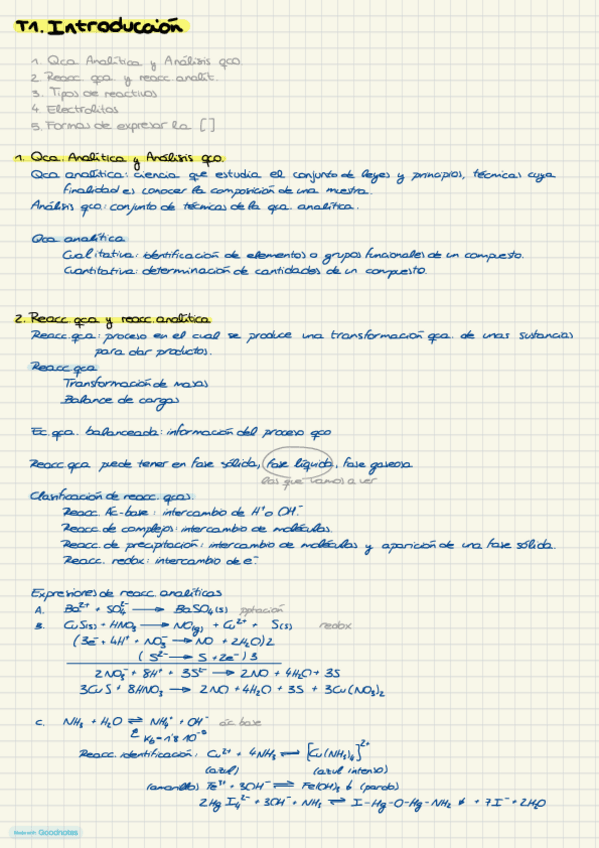 T1. Introducción
1. Qca Analítica y Análisis qco
2. Reacc qca y reacc analít.
3. Tipos de reactivos
4. Electrolitos
5. Formas de expresar la []
1. Qca. Analítica y Análisis qco.
Qca analítica: ciencia que estudia el conjunto de leyes y principios, técnicas cuya
finalidad es conocer la composición de una muestra.
Análisis qco: conjunto de técnicas de la qca. analítica.
Qca analítica
Cualitativa: identificación de elementos o grupos funcionales de un compuesto.
Cuantitativa: determinación de cantidades de un compuesto.
2. Reacc qca y reacc. analítica
Reacc. qca: proceso en el cual se produce una transformación qca. de unas sustancias
para dar productos.
Reacc qca
Transformación de masas
Balance de cargas
Ec. qca. balanceada: información del proceso qco
Reacc qca puede tener en fase sólida, fase líquida, fase gaseosa
las que vamos a ver
Clasificación de reacc. qcas.
Reacc. Ác-base: intercambio de H⁺ o OH⁻.
Reacc de complejos: intercambio de moléculas.
Reacc. de precipitación: intercambio de moléculas y aparición de una fase sólida.
Reacc. redox: intercambio de e⁻.
Expresiones de reacc. analíticas
A. Ba²⁺ + SO₄²⁻ → BaSO₄(s) pptación
B. CuS(s) + HNO₃ → NO(g) + Cu²⁺ + S(s) redox
(3e⁻ + 4H⁺ + NO₃⁻ → NO + 2H₂O) 2
(S²⁻ → S + 2e⁻) 3
2NO₃⁻ + 8H⁺ + 3S²⁻ → 2NO + 4H₂O + 3S
3CuS + 8HNO₃ → 2NO + 4H₂O + 3S + 3Cu(NO₃)₂
C. NH₃ + H₂O ⇌ NH₄⁺ + OH⁻ ác. base
Kb = 1'8·10⁻⁵
Reacc. identificación: Cu²⁺ + 4NH₃ ⇌ [Cu(NH₃)₄]²⁺
(azul) (azul intenso)
(amarillo) Fe³⁺ + 3OH⁻ ⇌ Fe(OH)₃ ↓ (pardo)
2HgI₄²⁻ + 3OH⁻ + NH₃ ⇌ I-Hg-O-Hg-NH₂ ↓ + 7I⁻ + 2H₂O
Made with Goodnotes